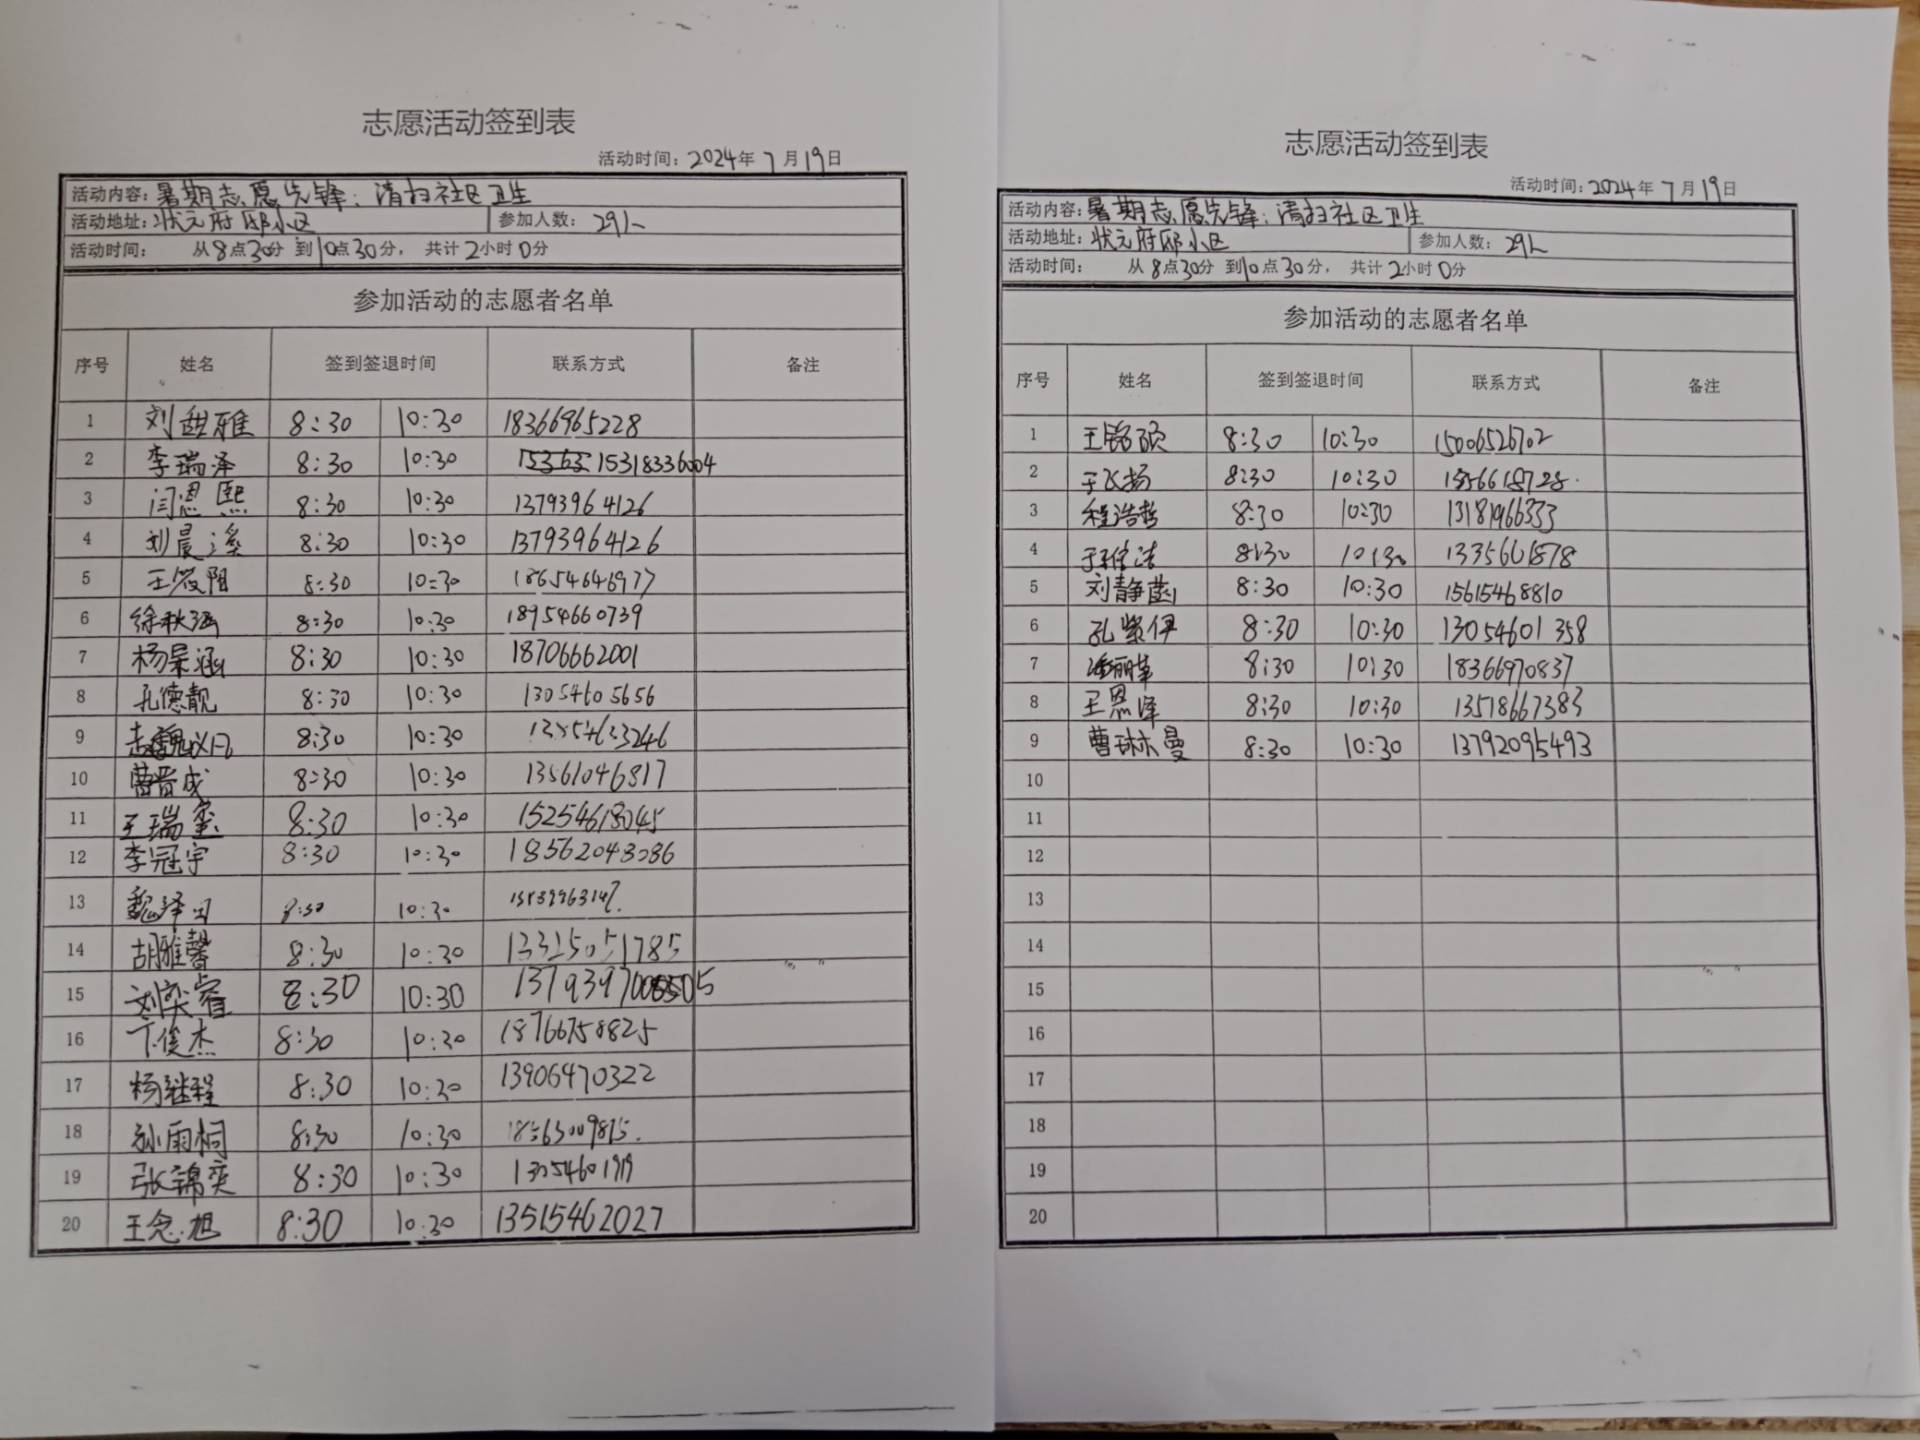 志愿活动签到表
活动时间：2024年7月19日
活动内容：暑期志愿先锋：清扫社区卫生
活动地址：状元府邸小区 参加人数：29人
活动时间： 从8点30分 到10点30分， 共计2小时0分
参加活动的志愿者名单
序号 姓名 签到签退时间 联系方式 备注
1 刘甜雅 8:30 10:30 18366965228
2 李瑞泽 8:30 10:30 15318336004
3 闫恩熙 8:30 10:30 13793964126
4 刘晨溪 8:30 10:30 13793964126
5 8:30 10:30 18654646977
6 徐秋涵 8:30 10:30 18954660739
7 杨景涵 8:30 10:30 18706662001
8 孔德靓 8:30 10:30 13054605656
9 8:30 10:30
10 曹晋成 8:30 10:30 13561046817
11 王瑞玺 8:30 10:30 15254618045
12 李冠宇 8:30 10:30 18562043086
13 8:30 10:30
14 胡雅馨 8:30 10:30 13315051785
15 刘奕睿 8:30 10:30
16 卞俊杰 8:30 10:30 18766758825
17 杨继程 8:30 10:30 13906470322
18 孙雨桐 8:30 10:30
19 张锦奕 8:30 10:30 13054601919
20 王念旭 8:30 10:30 13515462027
志愿活动签到表
活动时间：2024年7月19日
活动内容：暑期志愿先锋：清扫社区卫生
活动地址：状元府邸小区 参加人数：29人
活动时间： 从8点30分 到10点30分， 共计2小时0分
参加活动的志愿者名单
序号 姓名 签到签退时间 联系方式 备注
1 王铭硕 8:30 10:30 15006526702
2 于飞扬 8:30 10:30
3 程浩哲 8:30 10:30 13181966333
4 8:30 10:30 13356601878
5 刘静菡 8:30 10:30 15615468810
6 孔紫伊 8:30 10:30 13054601358
7 8:30 10:30 18366970837
8 王恩泽 8:30 10:30 13518667383
9 曹琳曼 8:30 10:30 13792095493
10
11
12
13
14
15
16
17
18
19
20